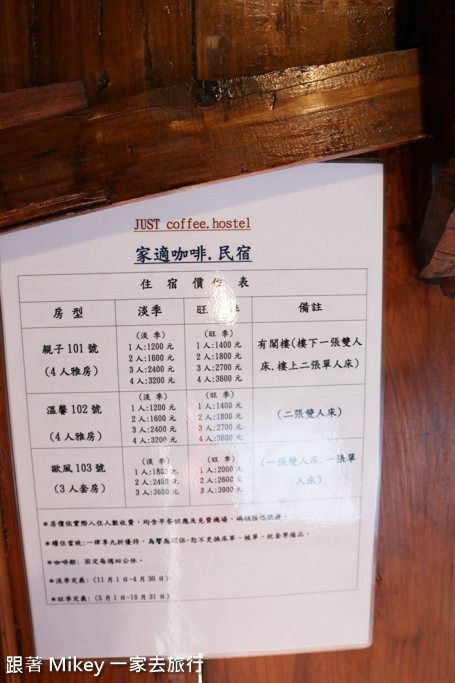 JUST coffee.hostel
家適咖啡.民宿
住 宿 價 表
房 型 淡季 旺 備註
親子 101 號
(4 人雅房)
(淡 季)
1 人:1200 元
2 人:1600 元
3 人:2400 元
4 人:3200 元
(旺 季)
1 人:1400 元
2 人:1800 元
3 人:2700 元
4 人:3600 元
有閣樓(樓下一張雙人
床.樓上二張單人床)
溫馨 102 號
(4 人雅房)
(淡 季)
1 人:1200 元
2 人:1600 元
3 人:2400 元
4 人:3200 元
(旺 季)
1 人:1400 元
2 人:1800 元
3 人:2700 元
4 人:3600 元
(二張雙人床)
歐風 103 號
(3 人套房)
(淡 季)
1 人:1800 元
2 人:2400 元
3 人:3600 元
(旺 季)
1 人:2000 元
2 人:2600 元
3 人:3900 元
(一張雙人床.一張單
人床)
*房價依實際入住人數收費，均含早餐供應及免費機場、碼頭接送服務。
*續住當晚:一律享九折優待，為響應環保-恕不更換床單、被單、枕套等備品。
*咖啡館: 固定每週四公休。
*淡季定義: (11 月 1 日-4 月 30 日)
*旺季定義: (5 月 1 日-10 月 31 日)
跟著 Mikey 一家去旅行